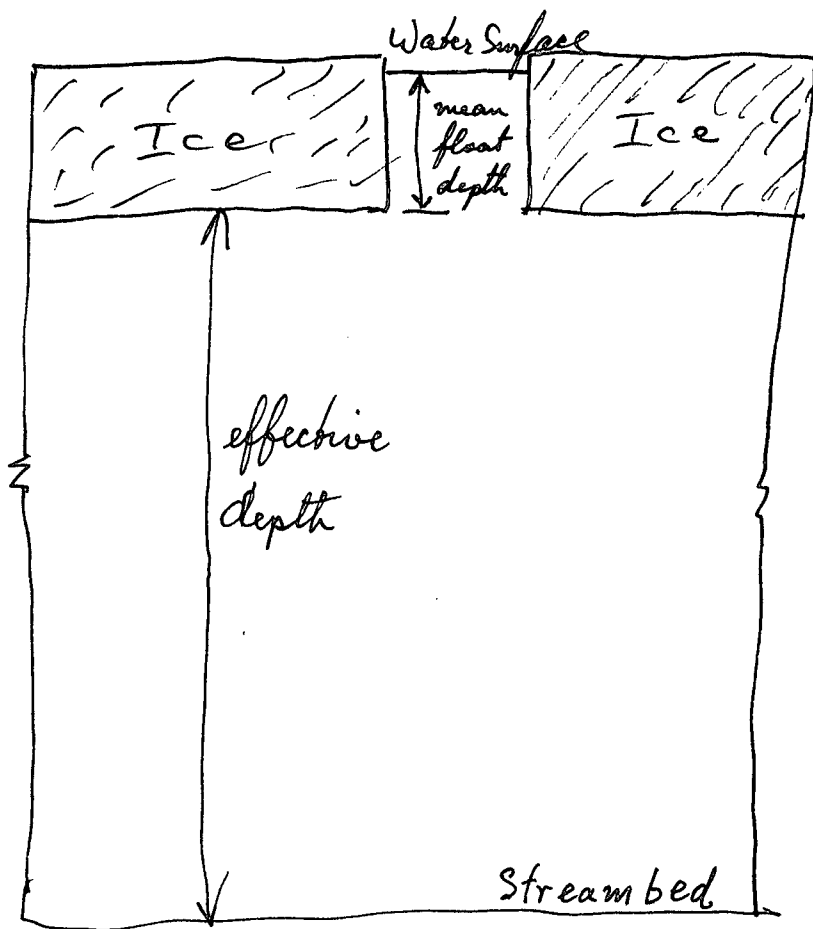 Water Surface
Ice
mean
float
depth
Ice
effective
depth
Streambed